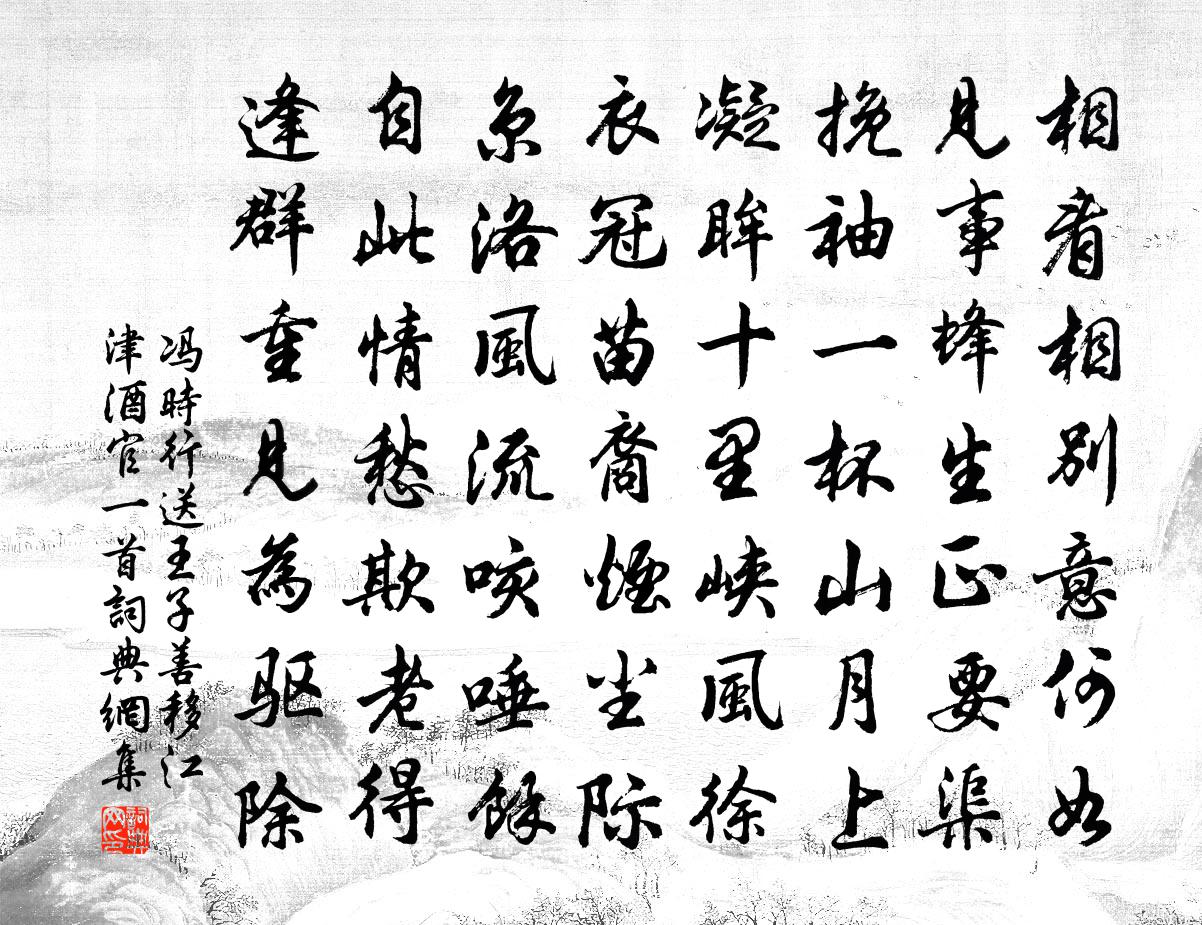 相看相别意何如
見事蜂生正要渠
挽袖一杯山月上
凝眸十里峽風徐
衣冠苗裔煙尘际
京洛風流咳唾餘
自此情愁欺老得
逢群重見為驱除
冯時行送王子善移江
津酒官一首詞典網集